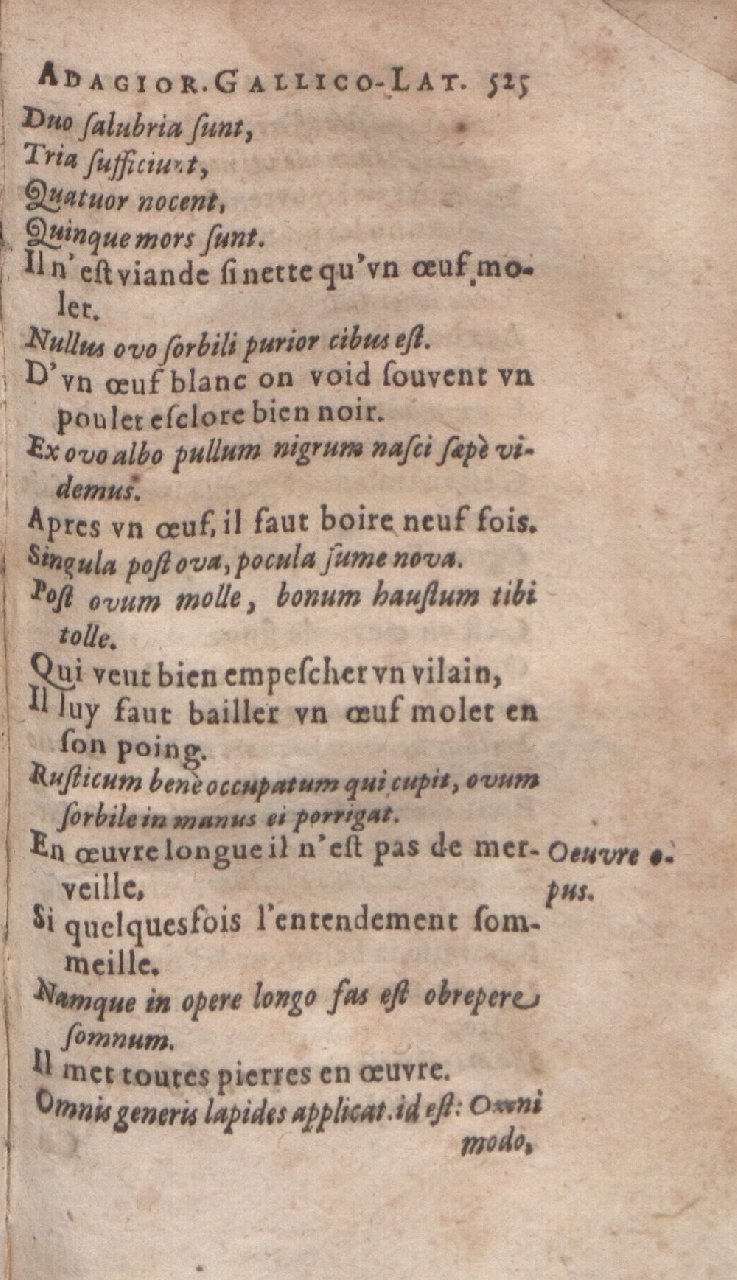 ADAGIOR. GALLICO-LAT. 525
Duo ſalubria ſunt,
Tria ſufficiunt,
Quatuor nocent,
Quinque mors ſunt.
Il n'eſt viande ſi nette qu'vn œuf mo-
let.
Nullus ovo ſorbili purior cibus eſt.
D'vn œuf blanc on void ſouvent vn
poulet eſclore bien noir.
Ex ovo albo pullum nigrum naſci ſæpè vi-
demus.
Apres vn œuf, il faut boire neuf fois.
Singula poſt ova, pocula ſume nova.
Poſt ovum molle, bonum hauſtum tibi
tolle.
Qui veut bien empeſcher vn vilain,
Il luy faut bailler vn œuf molet en
ſon poing.
Ruſticum benè occupatum qui cupit, ovum
ſorbile in manus ei porrigat.
En œuvre longue il n'eſt pas de mer-
veille,
Oeuvre o-
pus.
Si quelquesfois l'entendement ſom-
meille.
Namque in opere longo fas eſt obrepere
ſomnum.
Il met toutes pierres en œuvre.
Omnis generis lapides applicat. id eſt: Omni
modo,